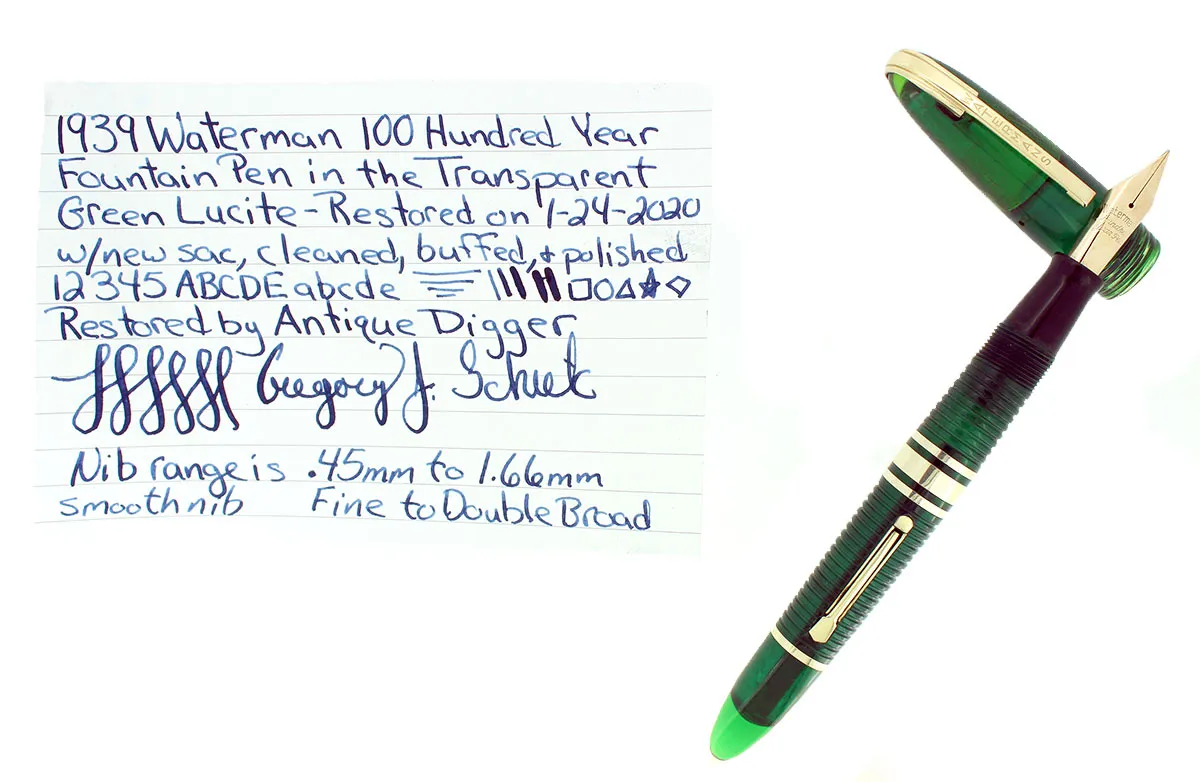 1939 Waterman 100 Hundred Year
Fountain Pen in the Transparent
Green Lucite - Restored on 1-24-2020
w/new sac, cleaned, buffed, + polished
12345 ABCDE abcde
Restored by Antique Digger
Gregory J.
Nib range is .45mm to 1.66mm
smooth nib Fine to Double Broad
WATERMANS